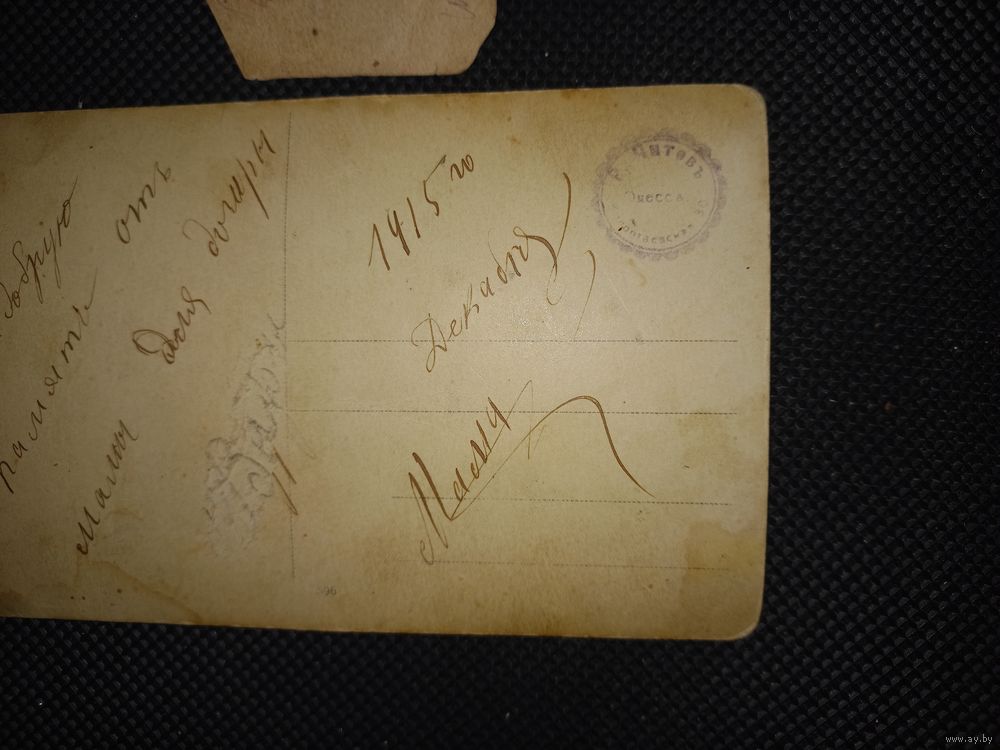 добрую
память отъ
мамы для дочиры
1915 го
Декабря
Мама
Читовъ
Одесса
96
www.ay.by